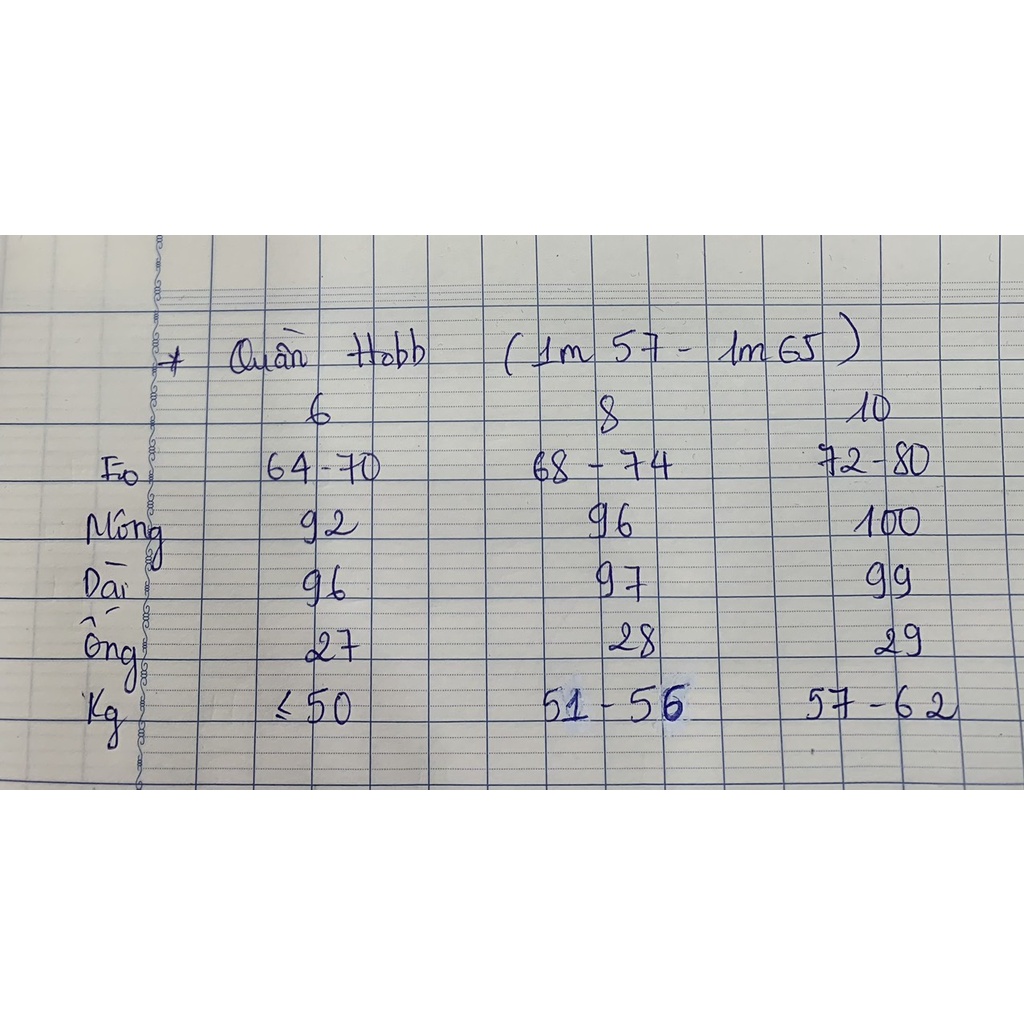 * Quần Hobb (1m 57 - 1m 65)
6 8 10
Eo 64-70 68-74 72-80
Mông 92 96 100
Dài 96 97 99
Ống 27 28 29
Kg ≤ 50 51-56 57-62